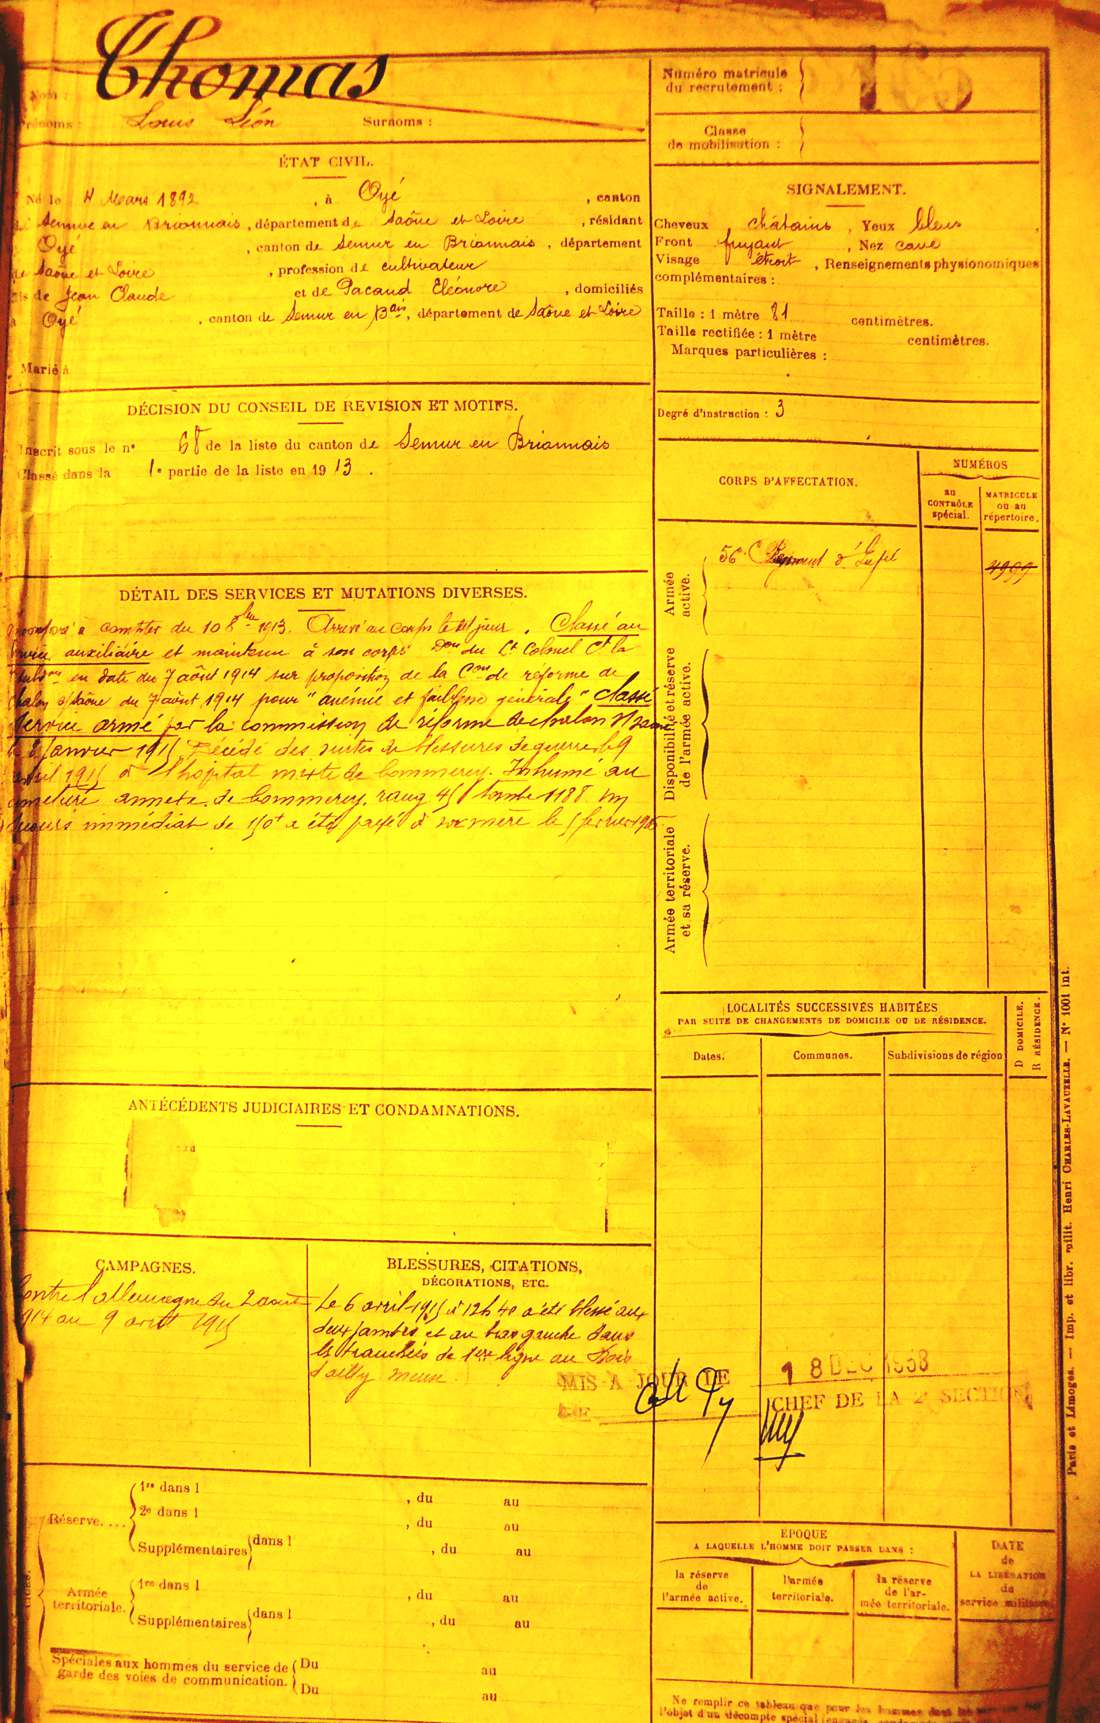 Thomas
Nom :
Prénoms : Louis Léon Surnoms :
Numéro matricule
du recrutement :
Classe
de mobilisation :
ÉTAT CIVIL.
Né le 4 Mars 1892, à Oyé, canton
de Semur en Brionnais, département de Saône et Loire, résidant
Oyé, canton de Semur en Brionnais, département
de Saône et Loire, profession de cultivateur
fils de Jean Claude et de Pacaud Eléonore, domiciliés
à Oyé, canton de Semur en Bais, département de Saône et Loire
Marié à
SIGNALEMENT.
Cheveux châtains, Yeux bleus,
Front fuyant, Nez cave
Visage étroit, Renseignements physionomiques
complémentaires :
Taille : 1 mètre 81 centimètres.
Taille rectifiée : 1 mètre centimètres.
Marques particulières :
Degré d'instruction : 3
DÉCISION DU CONSEIL DE REVISION ET MOTIFS.
Inscrit sous le n° 68 de la liste du canton de Semur en Brionnais
Classé dans la 1e partie de la liste en 1913.
CORPS D'AFFECTATION.
NUMÉROS
au
CONTRÔLE
spécial.
MATRICULE
ou au
répertoire.
Armée
active.
56e Régiment d'Inf
4999
Disponibilité et réserve
de l'armée active.
Armée territoriale
et sa réserve.
DÉTAIL DES SERVICES ET MUTATIONS DIVERSES.
Incorporé à compter du 10 8bre 1913. Arrivé au corps le dit jour. Classé au
service auxiliaire et maintenu à son corps Don du Lt Colonel Ct la
Subdon en date du 7 août 1914 sur proposition de la Con de réforme de
Chalon s/Saône du 7 août 1914 pour "anémie et faiblesse générale" Classé
service armé par la commission de réforme de Chalon s/Saône
le 2 Janvier 1915 Décédé des suites de blessures de guerre le 9
avril 1915 à l'hôpital mixte de Commercy. Inhumé au
cimetière annexe de Commercy, rang 45 tombe 1188. Un
secours immédiat de 150f a été payé à sa mère le 5 février 1915
LOCALITÉS SUCCESSIVES HABITÉES
PAR SUITE DE CHANGEMENTS DE DOMICILE OU DE RÉSIDENCE.
Dates.
Communes.
Subdivisions de région
D DOMICILE.
R RÉSIDENCE.
ANTÉCÉDENTS JUDICIAIRES ET CONDAMNATIONS.
CAMPAGNES.
Contre l'allemagne du 2 août
1914 au 9 avril 1915
BLESSURES, CITATIONS,
DÉCORATIONS, ETC.
Le 6 avril 1915 à 12h 40 a été blessé aux
deux jambes et au bras gauche dans
les tranchées de 1ère ligne au Bois
d'ailly Meuse
MIS A JOUR LE 18 DEC 1958
LE CHEF DE LA 2e SECTION
Réserve....
1re dans l , du au
2e dans l , du au
Supplémentaires dans l , du au
Armée
territoriale.
1re dans l , du au
Supplémentaires dans l , du au
Spéciales aux hommes du service de
garde des voies de communication.
Du au
Du au
ÉPOQUE
A LAQUELLE L'HOMME DOIT PASSER DANS :
la réserve
de
l'armée active.
l'armée
territoriale.
la réserve
de l'ar-
mée territoriale.
DATE
de
LA LIBÉRATION
du
service militaire
Ne remplir ce tableau que pour les hommes
l'objet d'un décompte spécial
Paris et Limoges. — Imp. et libr. milit. Henri CHARLES-LAVAUZELLE. — N° 1001 int.